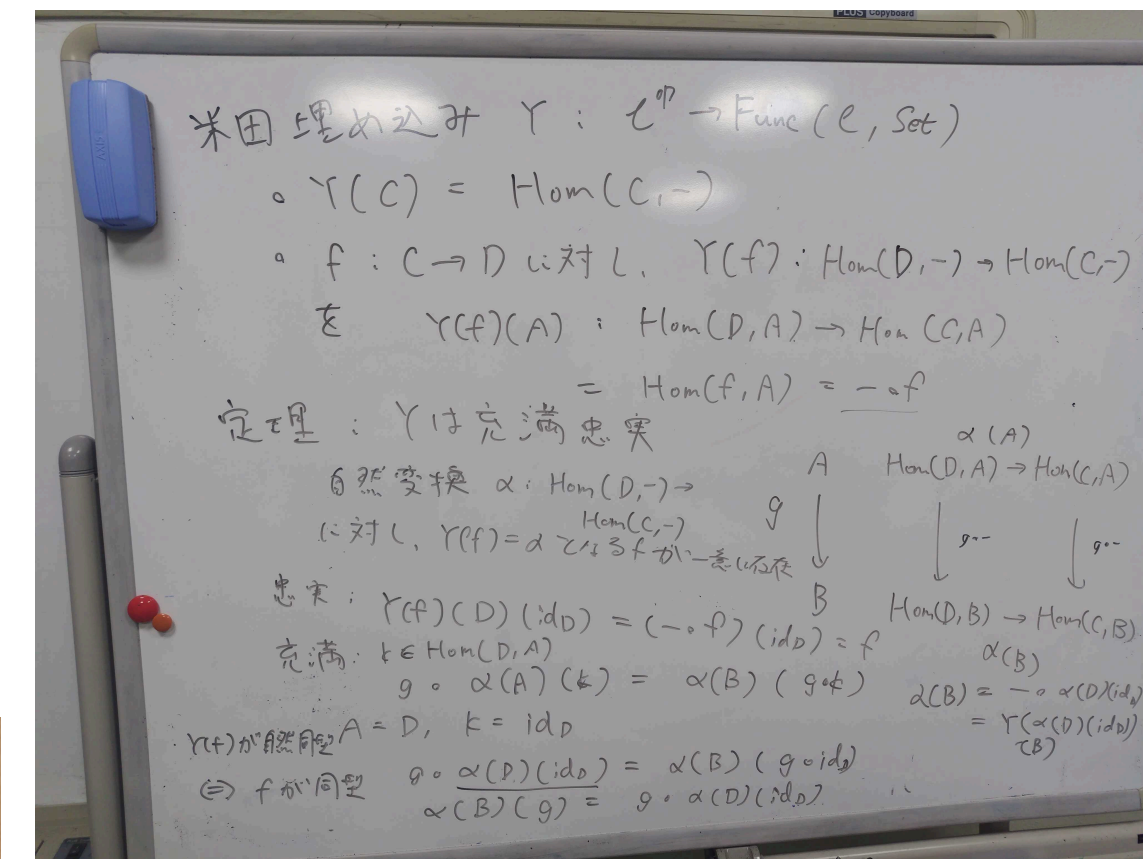 PLUS Copyboard
米田埋め込み Y : C^op → Func(C, Set)
◦ Y(C) = Hom(C, -)
◦ f : C → D に対し、 Y(f) : Hom(D, -) → Hom(C, -)
を Y(f)(A) : Hom(D, A) → Hom(C, A)
= Hom(f, A) = -∘f
定理 : Yは充満忠実
自然変換 α : Hom(D, -) →
Hom(C, -)
に対し、Y(f) = α となるfが一意に存在
忠実 : Y(f)(D)(id_D) = (-∘f)(id_D) = f
充満 : k ∈ Hom(D, A)
g ∘ α(A)(k) = α(B)(g∘k)
A = D, k = id_D
g ∘ α(D)(id_D) = α(B)(g∘id_D)
α(B)(g) = g ∘ α(D)(id_D)
・Y(f)が自然同型
⇔ fが同型
α(A)
A Hom(D, A) → Hom(C, A)
g ↓ ↓ g∘- ↓ g∘-
B Hom(D, B) → Hom(C, B)
α(B)
α(B) = -∘α(D)(id_D)
= Y(α(D)(id_D))
(B)